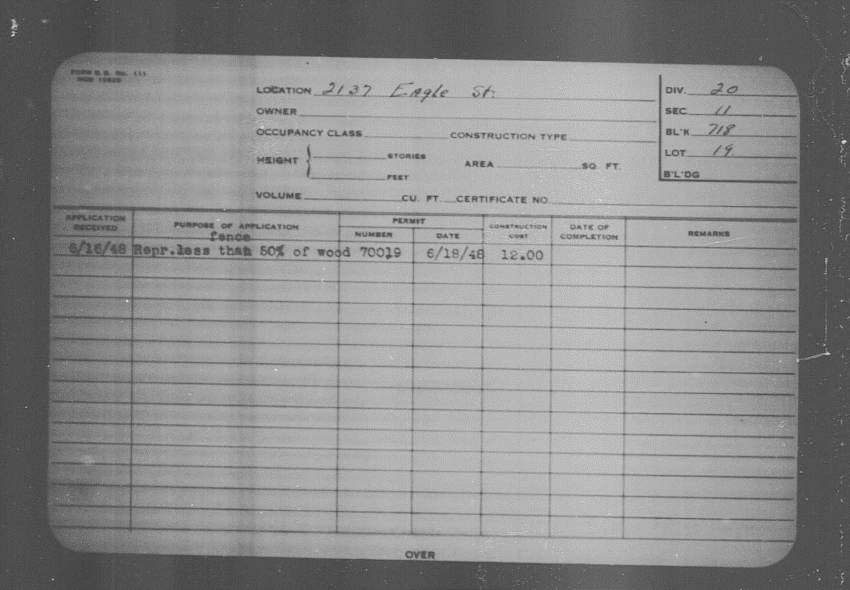 FORM B. D. No. 111
LOCATION 2137 Eagle St.
OWNER
OCCUPANCY CLASS CONSTRUCTION TYPE
HEIGHT { STORIES AREA SQ. FT.
FEET
VOLUME CU. FT. CERTIFICATE NO.
DIV. 20
SEC. 11
BL'K 718
LOT 19
B'L'DG
APPLICATION RECEIVED PURPOSE OF APPLICATION PERMIT NUMBER DATE CONSTRUCTION COST DATE OF COMPLETION REMARKS
fence
6/16/48 Repr.less than 50% of wood 70019 6/18/48 12.00
OVER